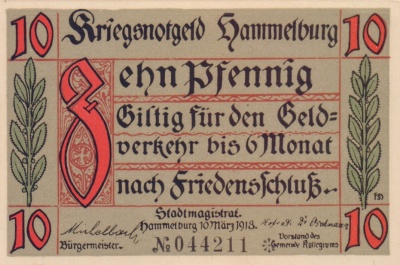 10 Kriegsnotgeld Hammelburg 10
Zehn Pfennig
Giltig für den Geld-
verkehr bis 6 Monat
nach Friedensschluß.
Stadtmagistrat.
Hammelburg 10 März 1918.
Bürgermeister. Vorstand des
Gemeinde Kollegiums
10 № 044211 10